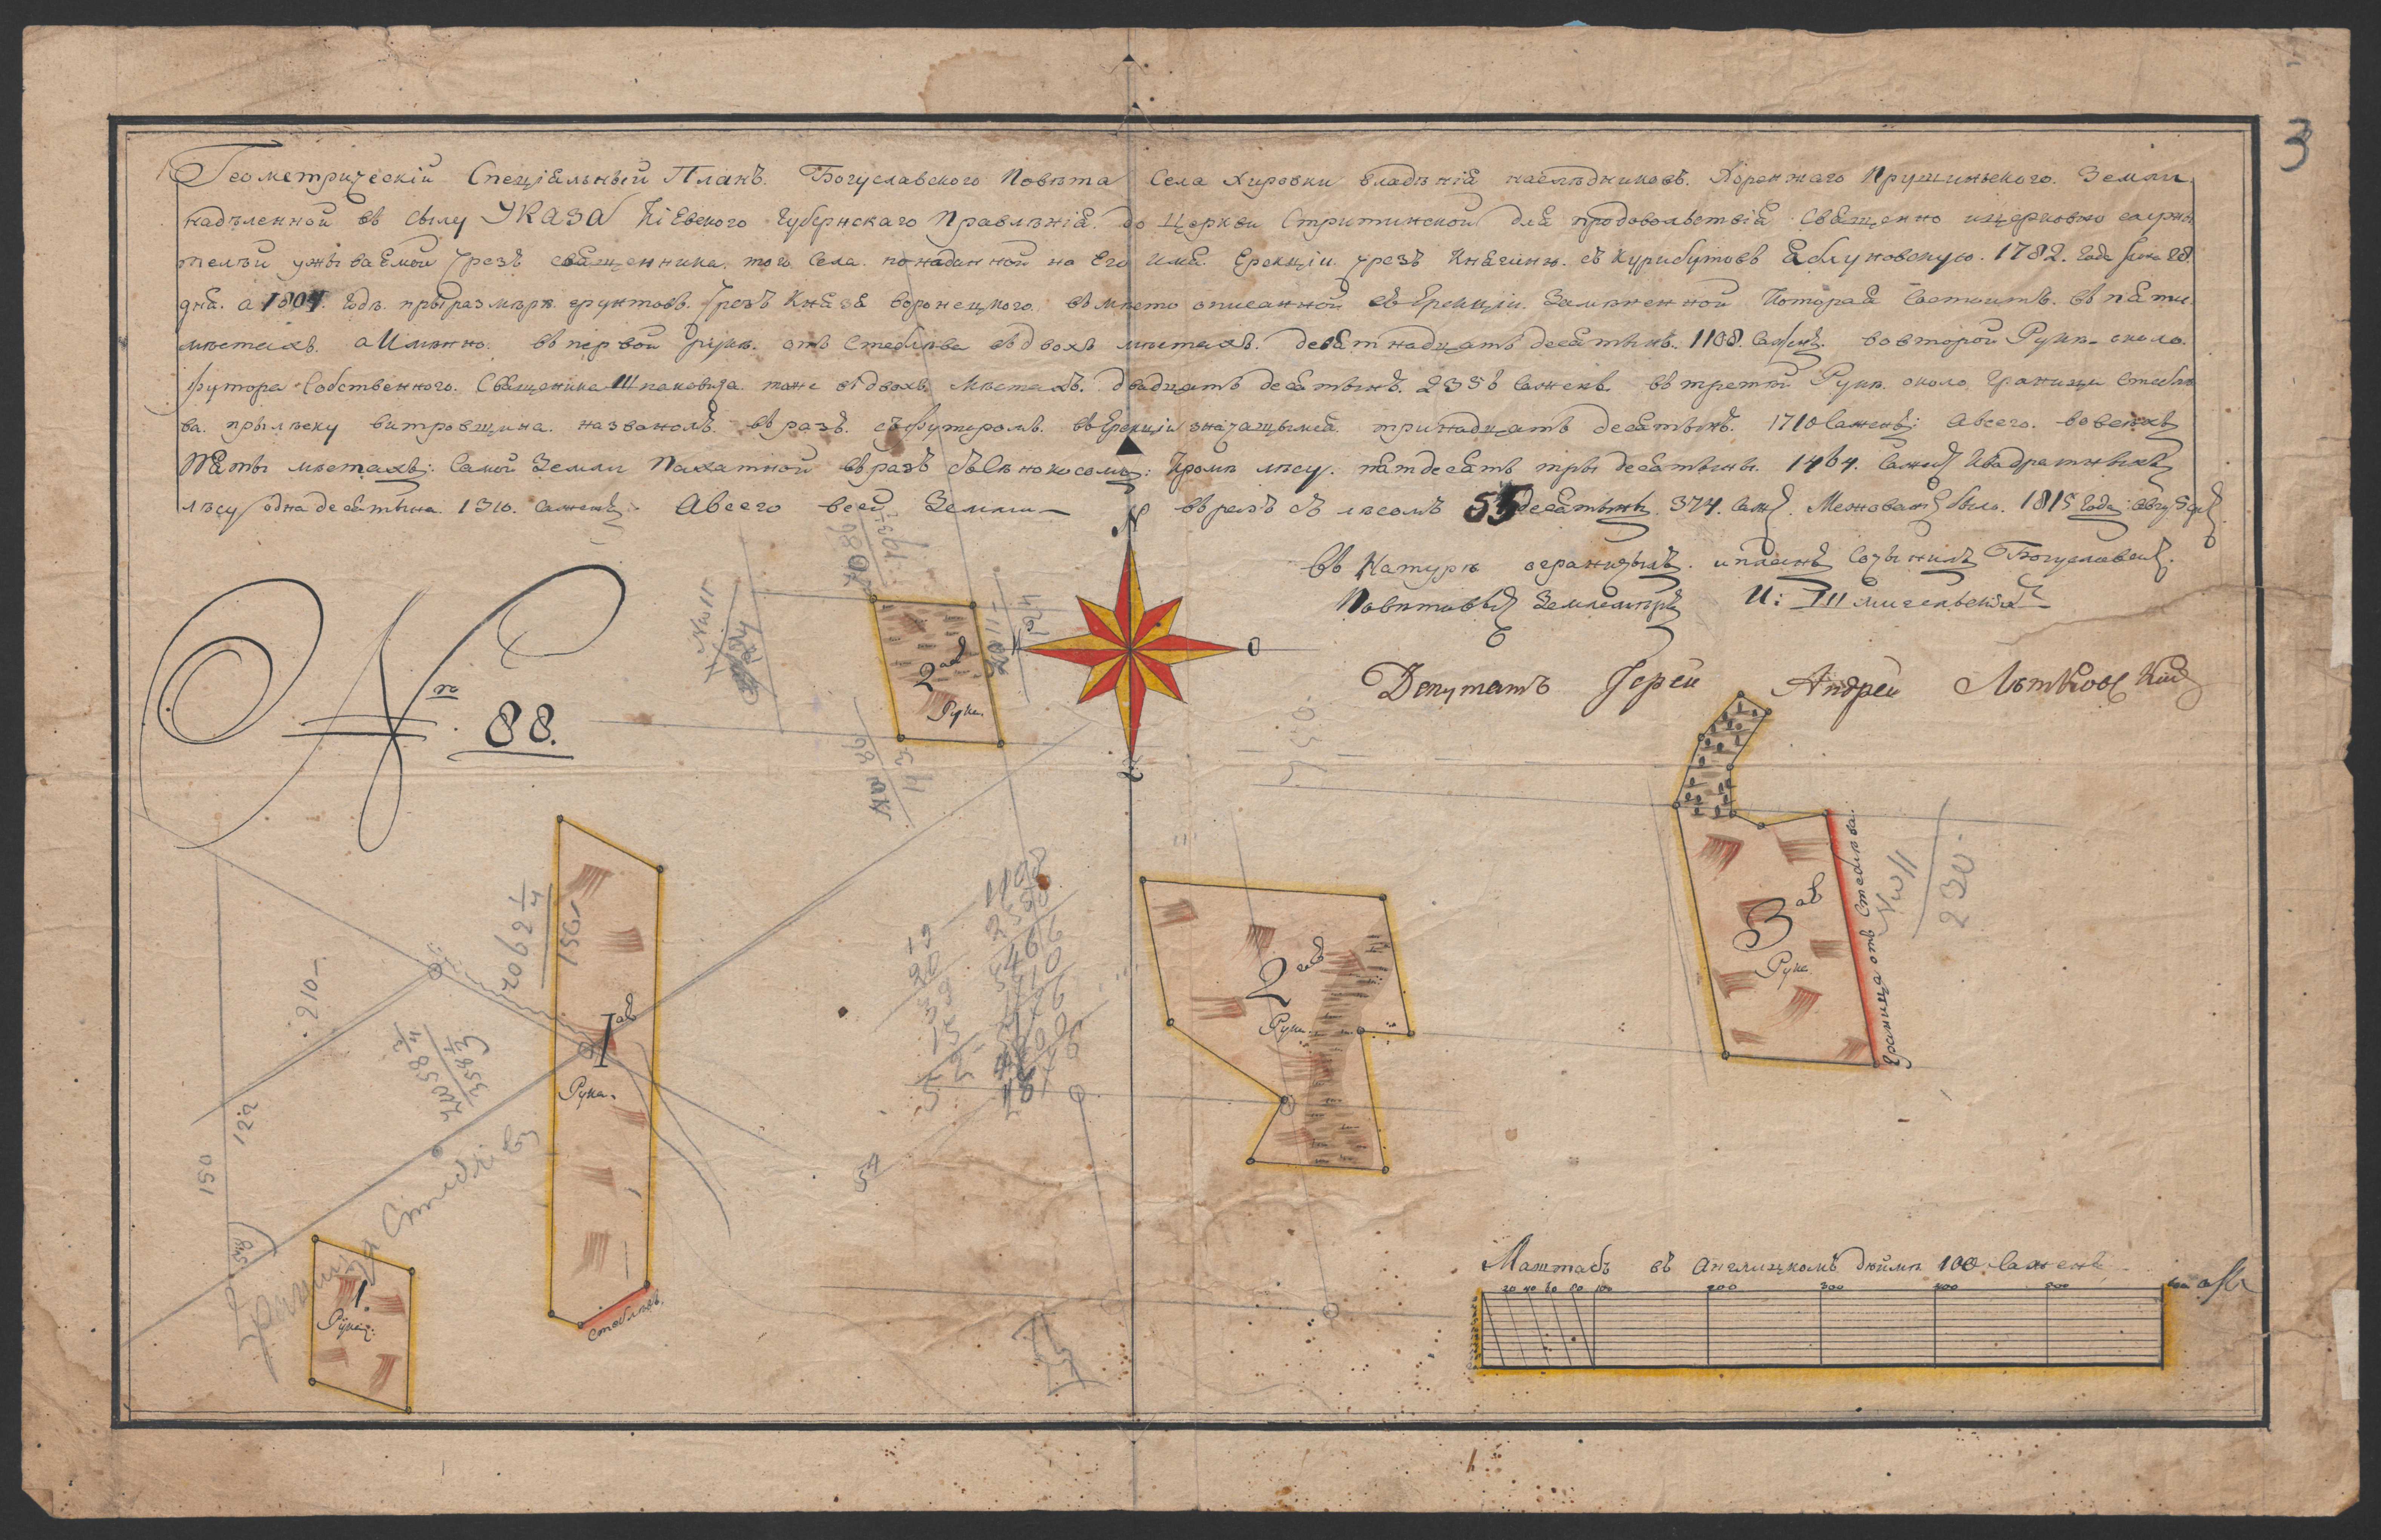 Геометрическій Спеціальный Планъ. Богуславского Повѣта Села Хировки владѣнія наслѣдниковъ. Хоренжаго Прушиньского. Земли
надѣленной въ силу УКАЗА Кіевского Губернскаго Правлѣнія. до Церкви Стритинской для продовольствія Священно ицерковно служи
телми ужываемой Чрезъ священника. той Села. понаданной на Его имя. Ерекціи Чрезъ Княгиню. съ Курибутовъ Яблуновскую. 1782. Года 28.
дня. а 1804. Годѣ. прыразмѣрѣ грунтовъ. Чрезъ Князя воронецкого. вмѣсто описанной въ Ерекціи. Замѣненной Которая Состоитъ. въ пяти
мѣстахъ. а Имѣнно. въ первой Рукѣ. отъ Стеблева въ двохъ мѣстахъ. девятнадцать десятынъ. 1108. Сажен. во второй Рукѣ около.
Футора Собственного. Священика Шпаковича. тоже въ двохъ Мѣстахъ. двадцать десятынъ. 2358 Саженъ. въ третти Рукѣ. около Границы Стебле
ва. прылѣску витровщина. названомъ. вразъ. съ Футоромъ. въ Ерекціи значащымся. тринадцать десятынъ. 1710 Саженъ; авсего. вовсихъ
Пяты мѣстахъ; Самой Земли Пахатной вразъ съ Сѣнокосомъ; Кромѣ лѣсу. пятдесятъ тры десятыны. 1464. Сажен Квадратныхъ
лѣсу одна десятына. 1310. Саженъ; Авсего всей Земли вразъ съ лѣсомъ 55 десятынъ. 374. Саж. Межованъ былъ. 1815 Года
Въ Натурѣ ограничылъ. ипланъ Сочынилъ Богуславск.
Повѣтовый Землемѣръ И: Шмигельскій
Депутатъ Іерей Андрей Лѣтковскій
№ 88.
3
N
O
2ая
Рука.
1ая
Рука.
1.
Рука
Стеблѣвъ.
2ая
Рука
3ая
Рука
Граница отъ Стеблева.
Граница Стеблѣв
NW 11
230-
150
122
210-
2062 1/4
Маштабъ въ Англицкомъ дюймѣ 100 Саженъ
20 40 60 80 100 200 300 400 500 600